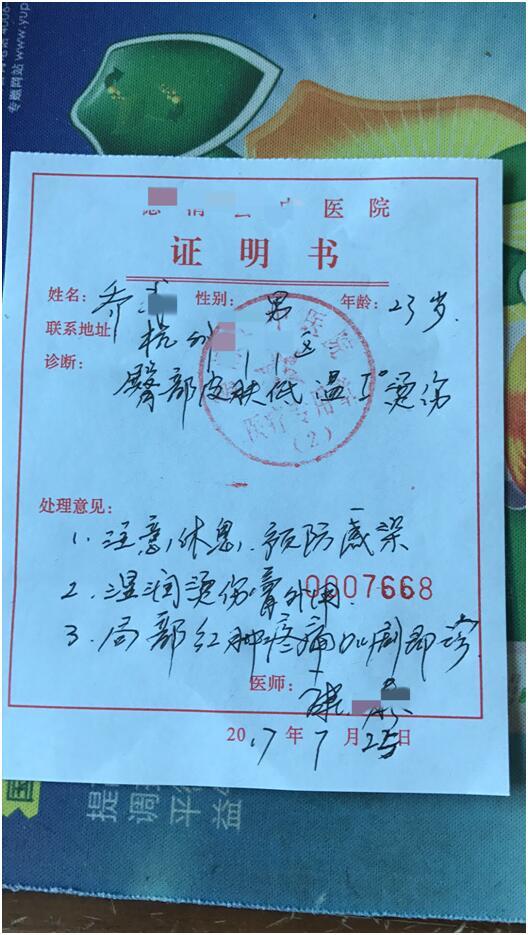 专题网站 www.yup
医院
证明书
姓名：乔 性别：男 年龄：23岁.
联系地址 杭州
诊断：
臀部皮肤低温I°烫伤
医院
医疗专用章
（2）
处理意见：
1. 注意休息，预防感染
2. 湿润烫伤膏外用.
0007668
3. 局部红肿疼痛加剧即诊.
医师：
2017年7月25日
国
提
调
平
益